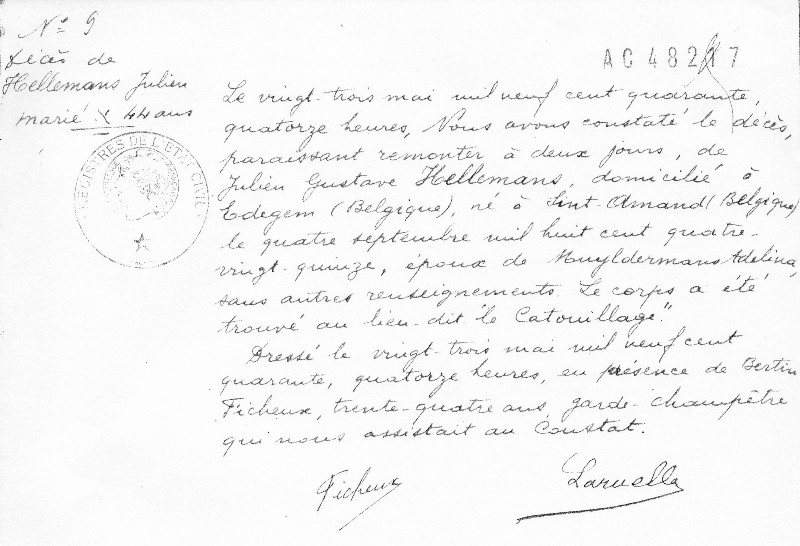 N° 9
Décès de
Hellemans Julien
marié X 44 ans
REGISTRES DE L'ETAT CIVIL
AC 48217
Le vingt-trois mai mil neuf cent quarante,
quatorze heures, Nous avons constaté le décès,
paraissant remonter à deux jours, de
Julien Gustave Hellemans, domicilié à
Edegem (Belgique), né à Sint-Amand (Belgique)
le quatre septembre mil huit cent quatre-
vingt-quinze, époux de Muyldermans Adelina,
sans autres renseignements. Le corps a été
trouvé au lieu-dit "le Catouillage".
Dressé le vingt-trois mai mil neuf cent
quarante, quatorze heures, en présence de Bertin
Ficheux, trente-quatre ans, garde-champêtre
qui nous assistait au constat.
Ficheux
Laruelle